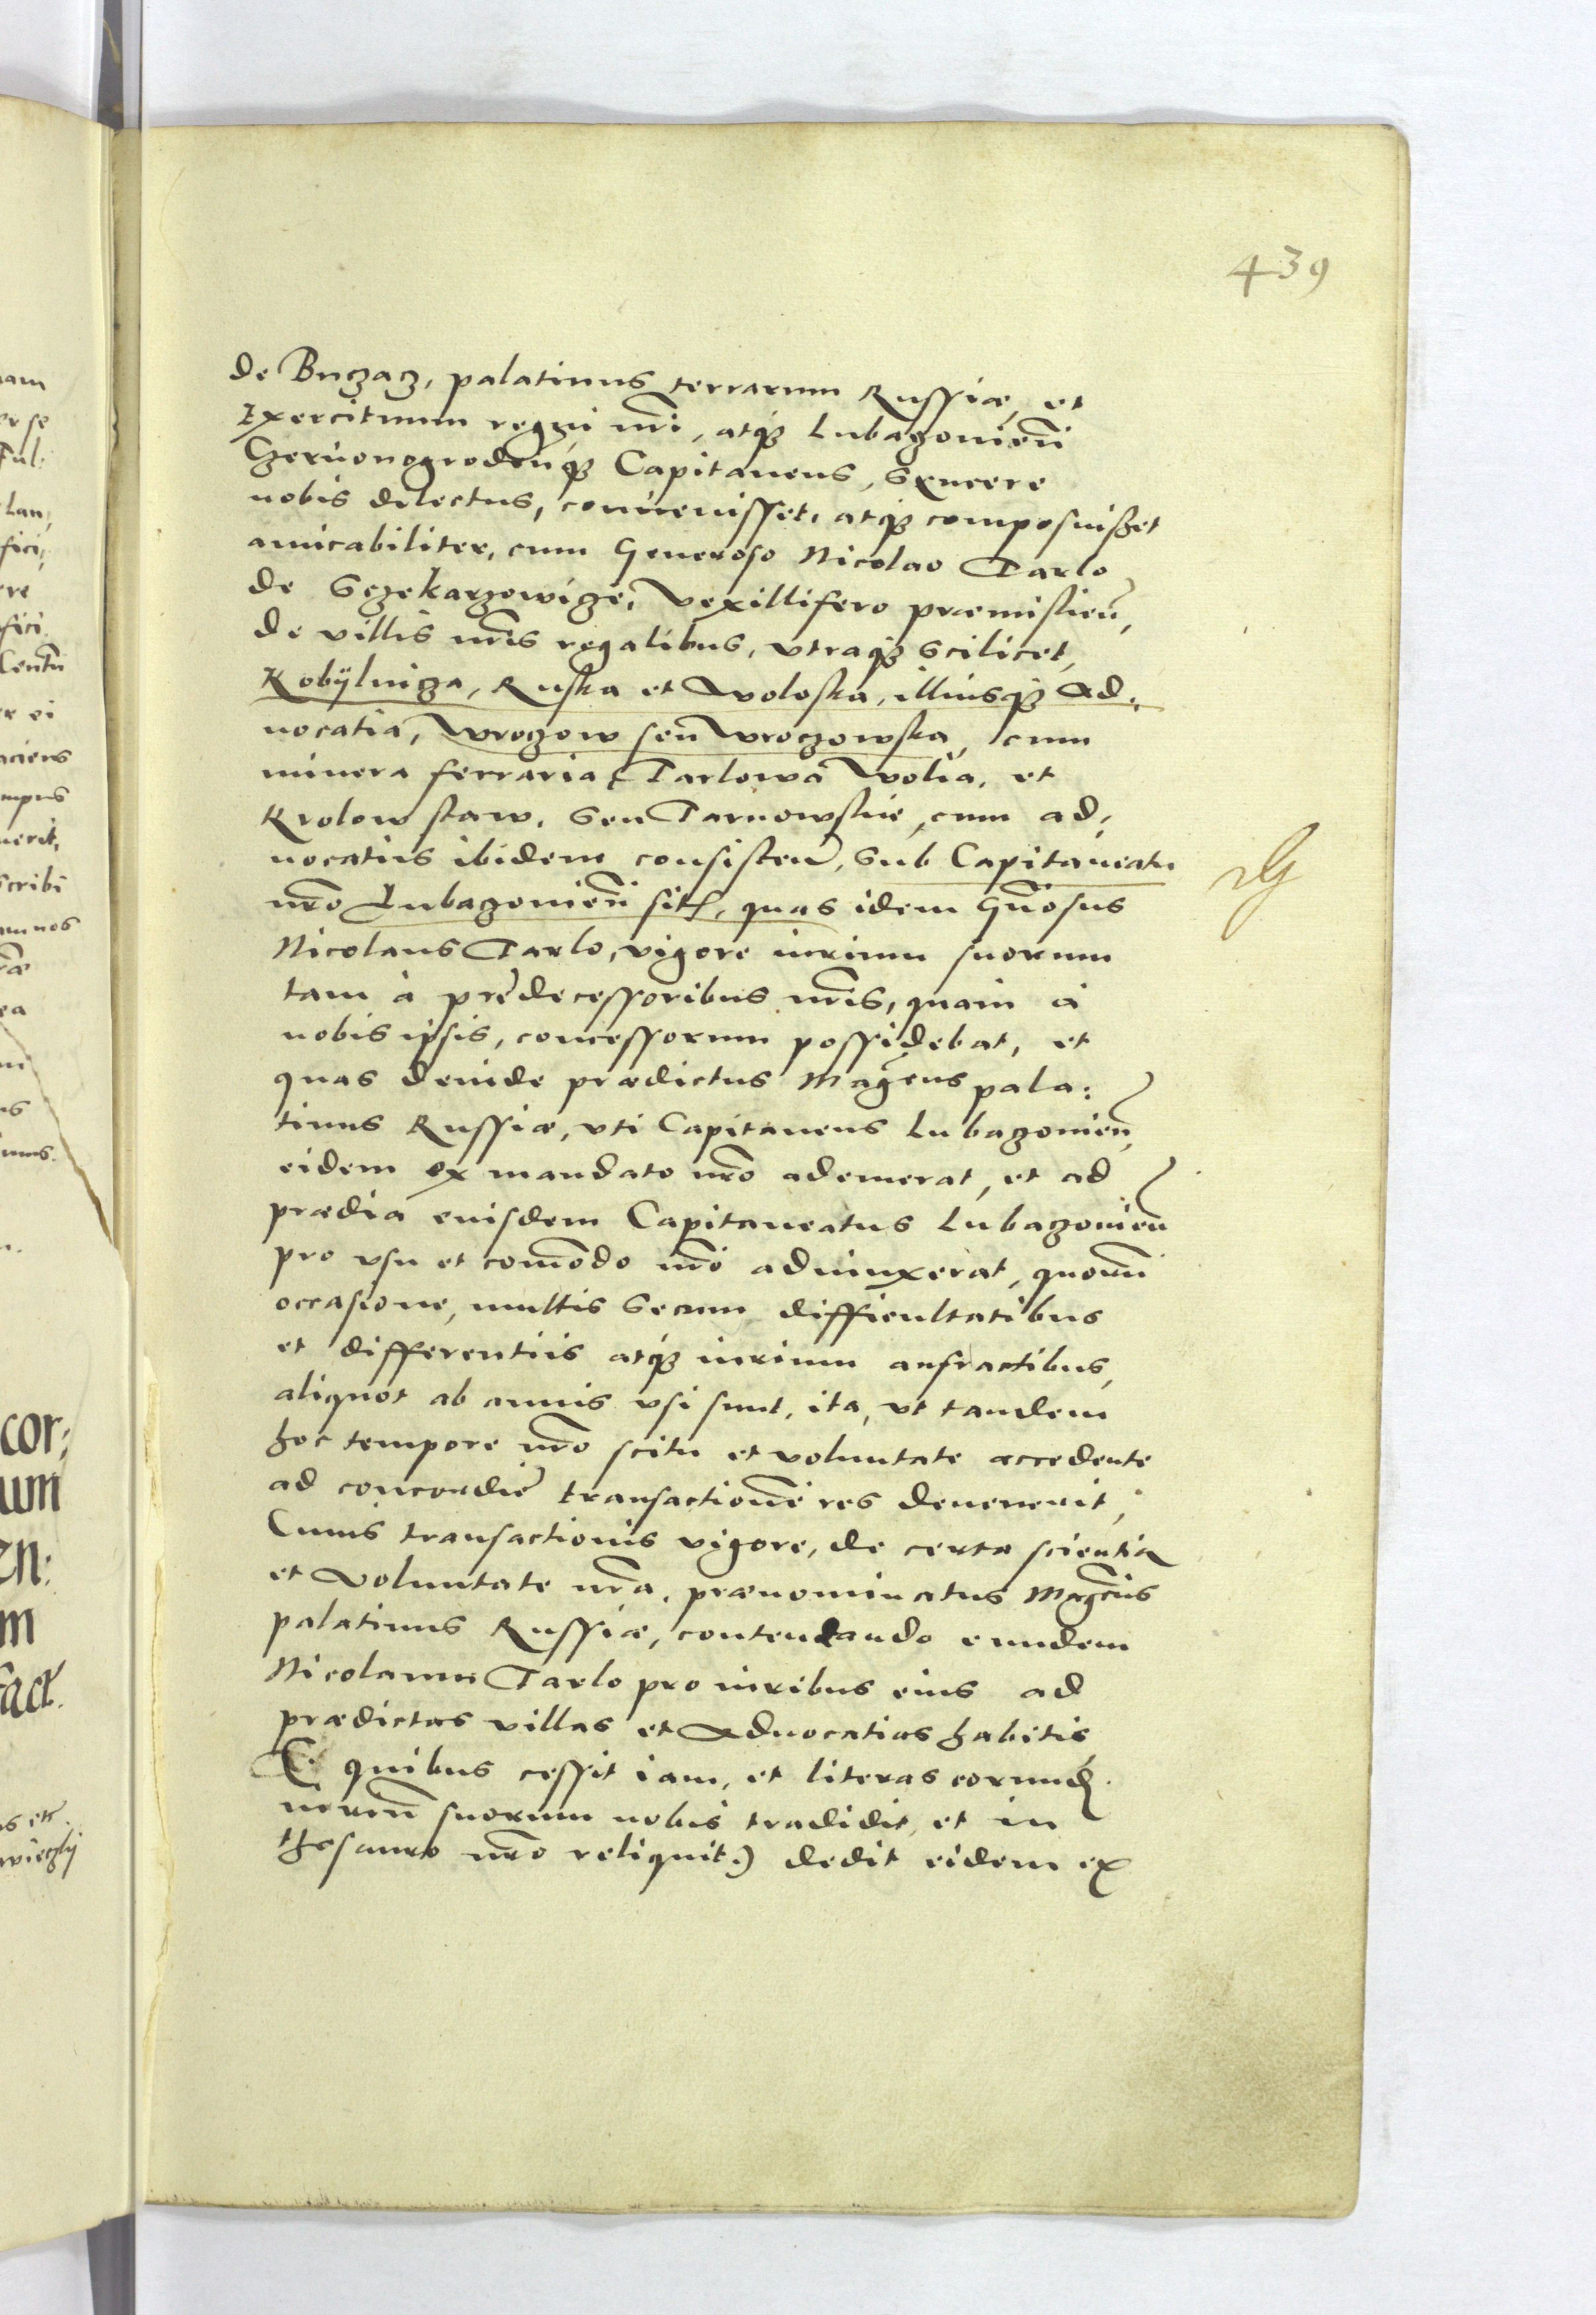 439
de Buczacz, palatinus terrarum Russiæ, et
Exercituum regni nr̃i, atq₃ Lubaczouien̄
Czeruonogroden̄q₃ Capitaneus, Syncere
nobis dilectus, conuenisset, atq₃ composuisset
amicabiliter, cum Generoso Nicolao Tarlo
de Sczekarzowicze, Vexillifero præmislien̄,
de villis nr̃is regalibus, vtraq₃ scilicet,
Kobÿlnicza, Ruska et Woloska, illiusq₃ Ad:
uocatia, Wroczow seu Wroczowska, cum
minera ferraria, Tarlowa Wolia, et
Krolow staw, seu Tarnowskie, cum ad:
uocatiis ibidem consisteñ, sub Capitaneatu
nr̃o Lubaczouien̄ sit̃, quas idem Gñosus
Nicolaus Tarlo, vigore iurium suorum
tam à prędecessoribus nr̃is, quam à
nobis ipsis, concessorum possidebat, et
quas deinde prædictus Mag̃cus pala:
tinus Russiæ, vti Capitaneus Lubaczouien̄,
eidem ex mandato nr̃o ademerat, et ad
prædia eiusdem Capitaneatus Lubaczouien̄
pro vsu et com̄odo nr̃o adiunxerat, quorum̄
occasione, multis secum difficultatibus
et differentiis atq₃ iurium anfractibus,
aliquot ab annis vsi sunt, ita, vt tandem
hoc tempore nr̃o scitu et voluntate accedente
ad concordię transactionē res deuenerit,
Cuius transactionis vigore, de certa scientia
et voluntate nr̃a, prænominatus Mag̃cus
palatinus Russiæ, contentando eundem
Nicolaum Tarlo pro iuribus eius ad
prædictas villas et Aduocatias habitis
(: quibus cessit iam, et literas eorund̃
iuriũ suorum nobis tradidit, et in
thesauro nr̃o reliquit:) dedit eidem ex